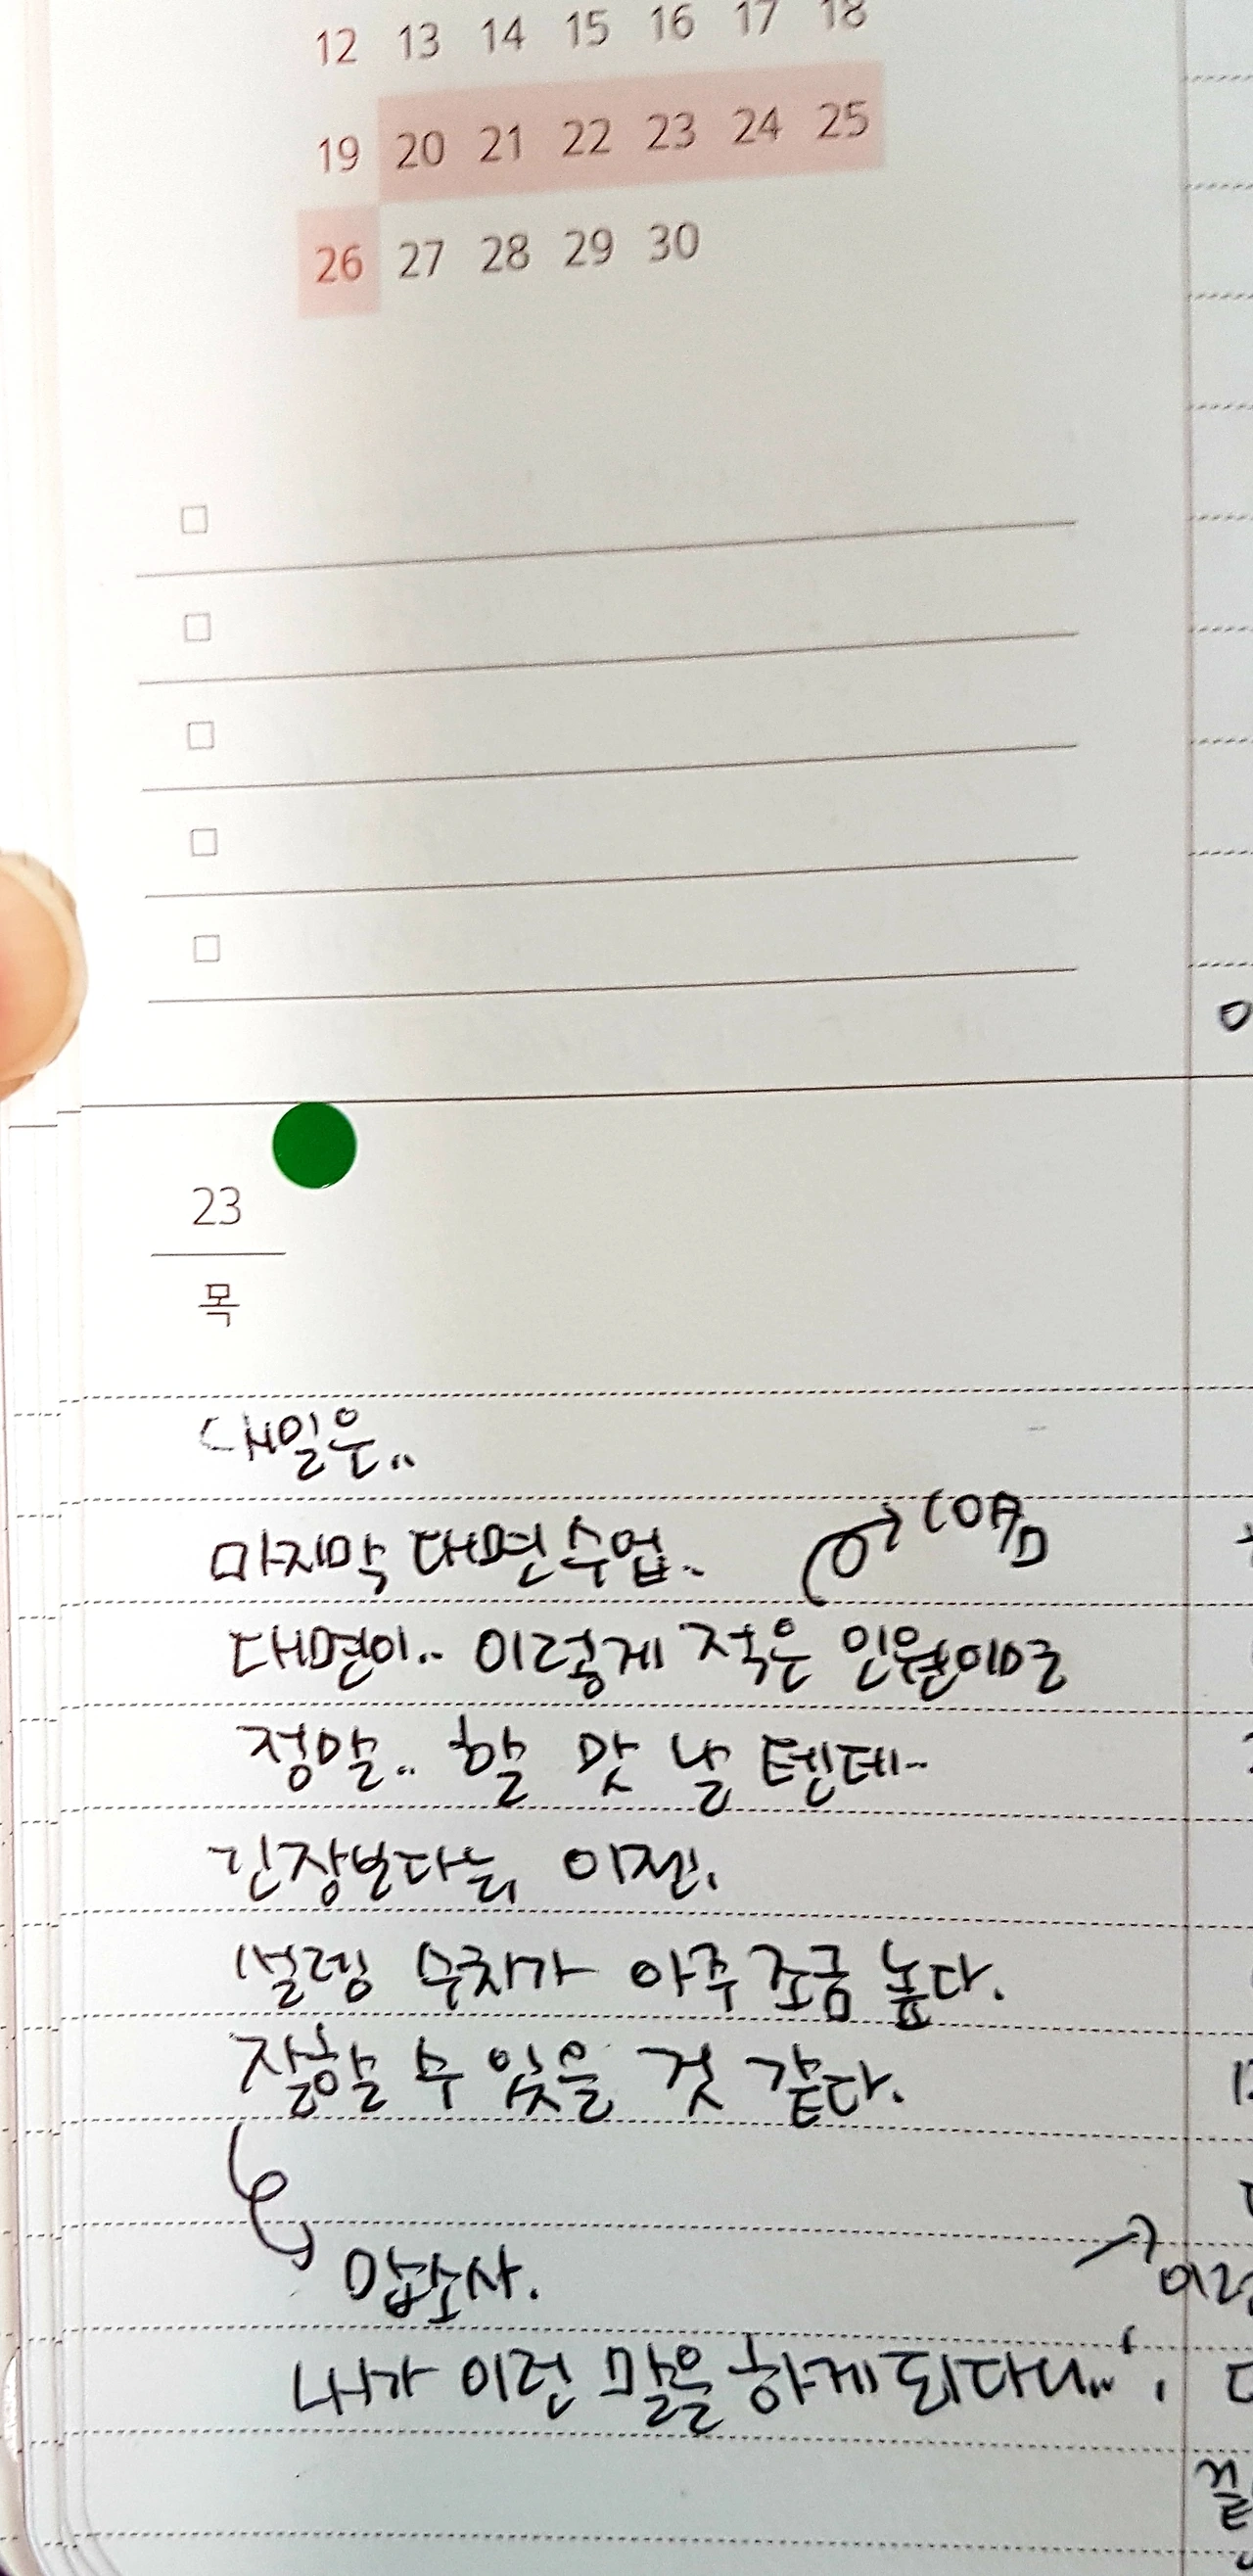 12 13 14 15 16 17 18
19 20 21 22 23 24 25
26 27 28 29 30
23
목
내일은..
마지막 대면수업..
대면이.. 이렇게 적은 인원이므로
정말.. 할 맛 날 텐데..
긴장보다는, 이젠,
설렘 수치가 아주 조금 높다.
잘할 수 있을 것 같다.
맙소사.
내가 이런 말을 하게 되다니...